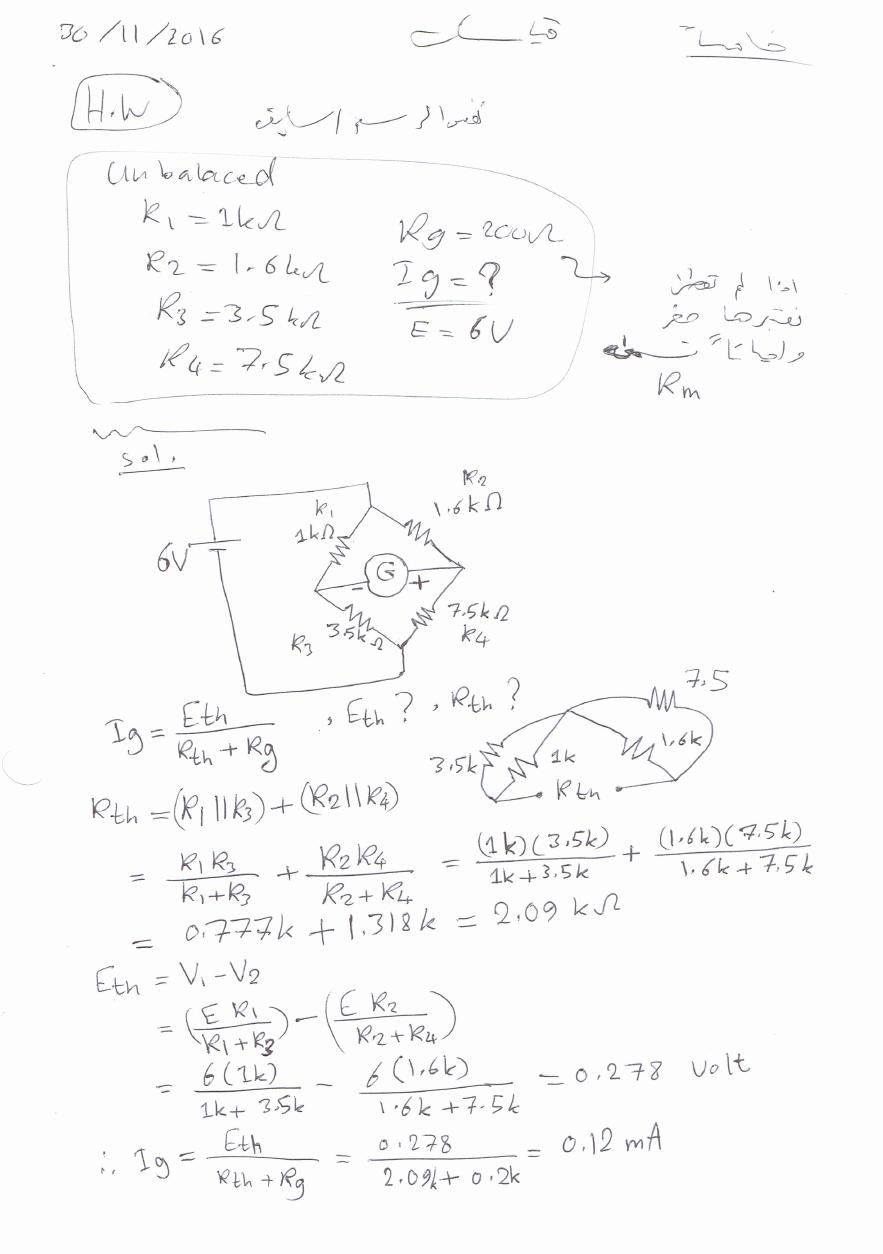 30/11/2016 قياسات خامسة
H.W نفس الرسم السابق
Unbalaced
R1 = 1kΩ
R2 = 1.6kΩ
R3 = 3.5kΩ
R4 = 7.5kΩ
Rg = 200Ω
Ig = ?
E = 6V
اذا لم تعطى
نعتبرها صفر
واحياناً
Rm
sol.
R1
1kΩ
R2
1.6kΩ
6V
- G +
R3
3.5kΩ
7.5kΩ
R4
Ig = Eth / (Rth + Rg) , Eth ? , Rth ?
7.5
3.5k
1k
1.6k
Rth
Rth = (R1 || R3) + (R2 || R4)
= R1 R3 / (R1 + R3) + R2 R4 / (R2 + R4) = (1k)(3.5k) / (1k + 3.5k) + (1.6k)(7.5k) / (1.6k + 7.5k)
= 0.777k + 1.318k = 2.09 kΩ
Eth = V1 - V2
= (E R1 / (R1 + R3)) - (E R2 / (R2 + R4))
= 6(1k) / (1k + 3.5k) - 6(1.6k) / (1.6k + 7.5k) = 0.278 volt
∴ Ig = Eth / (Rth + Rg) = 0.278 / (2.09k + 0.2k) = 0.12 mA